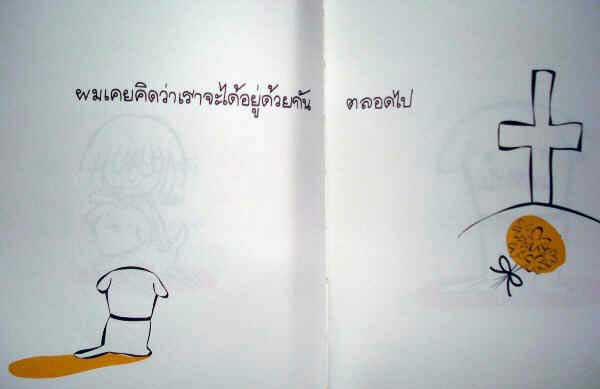 ผมเคยคิดว่าเราจะได้อยู่ด้วยกัน ตลอดไป